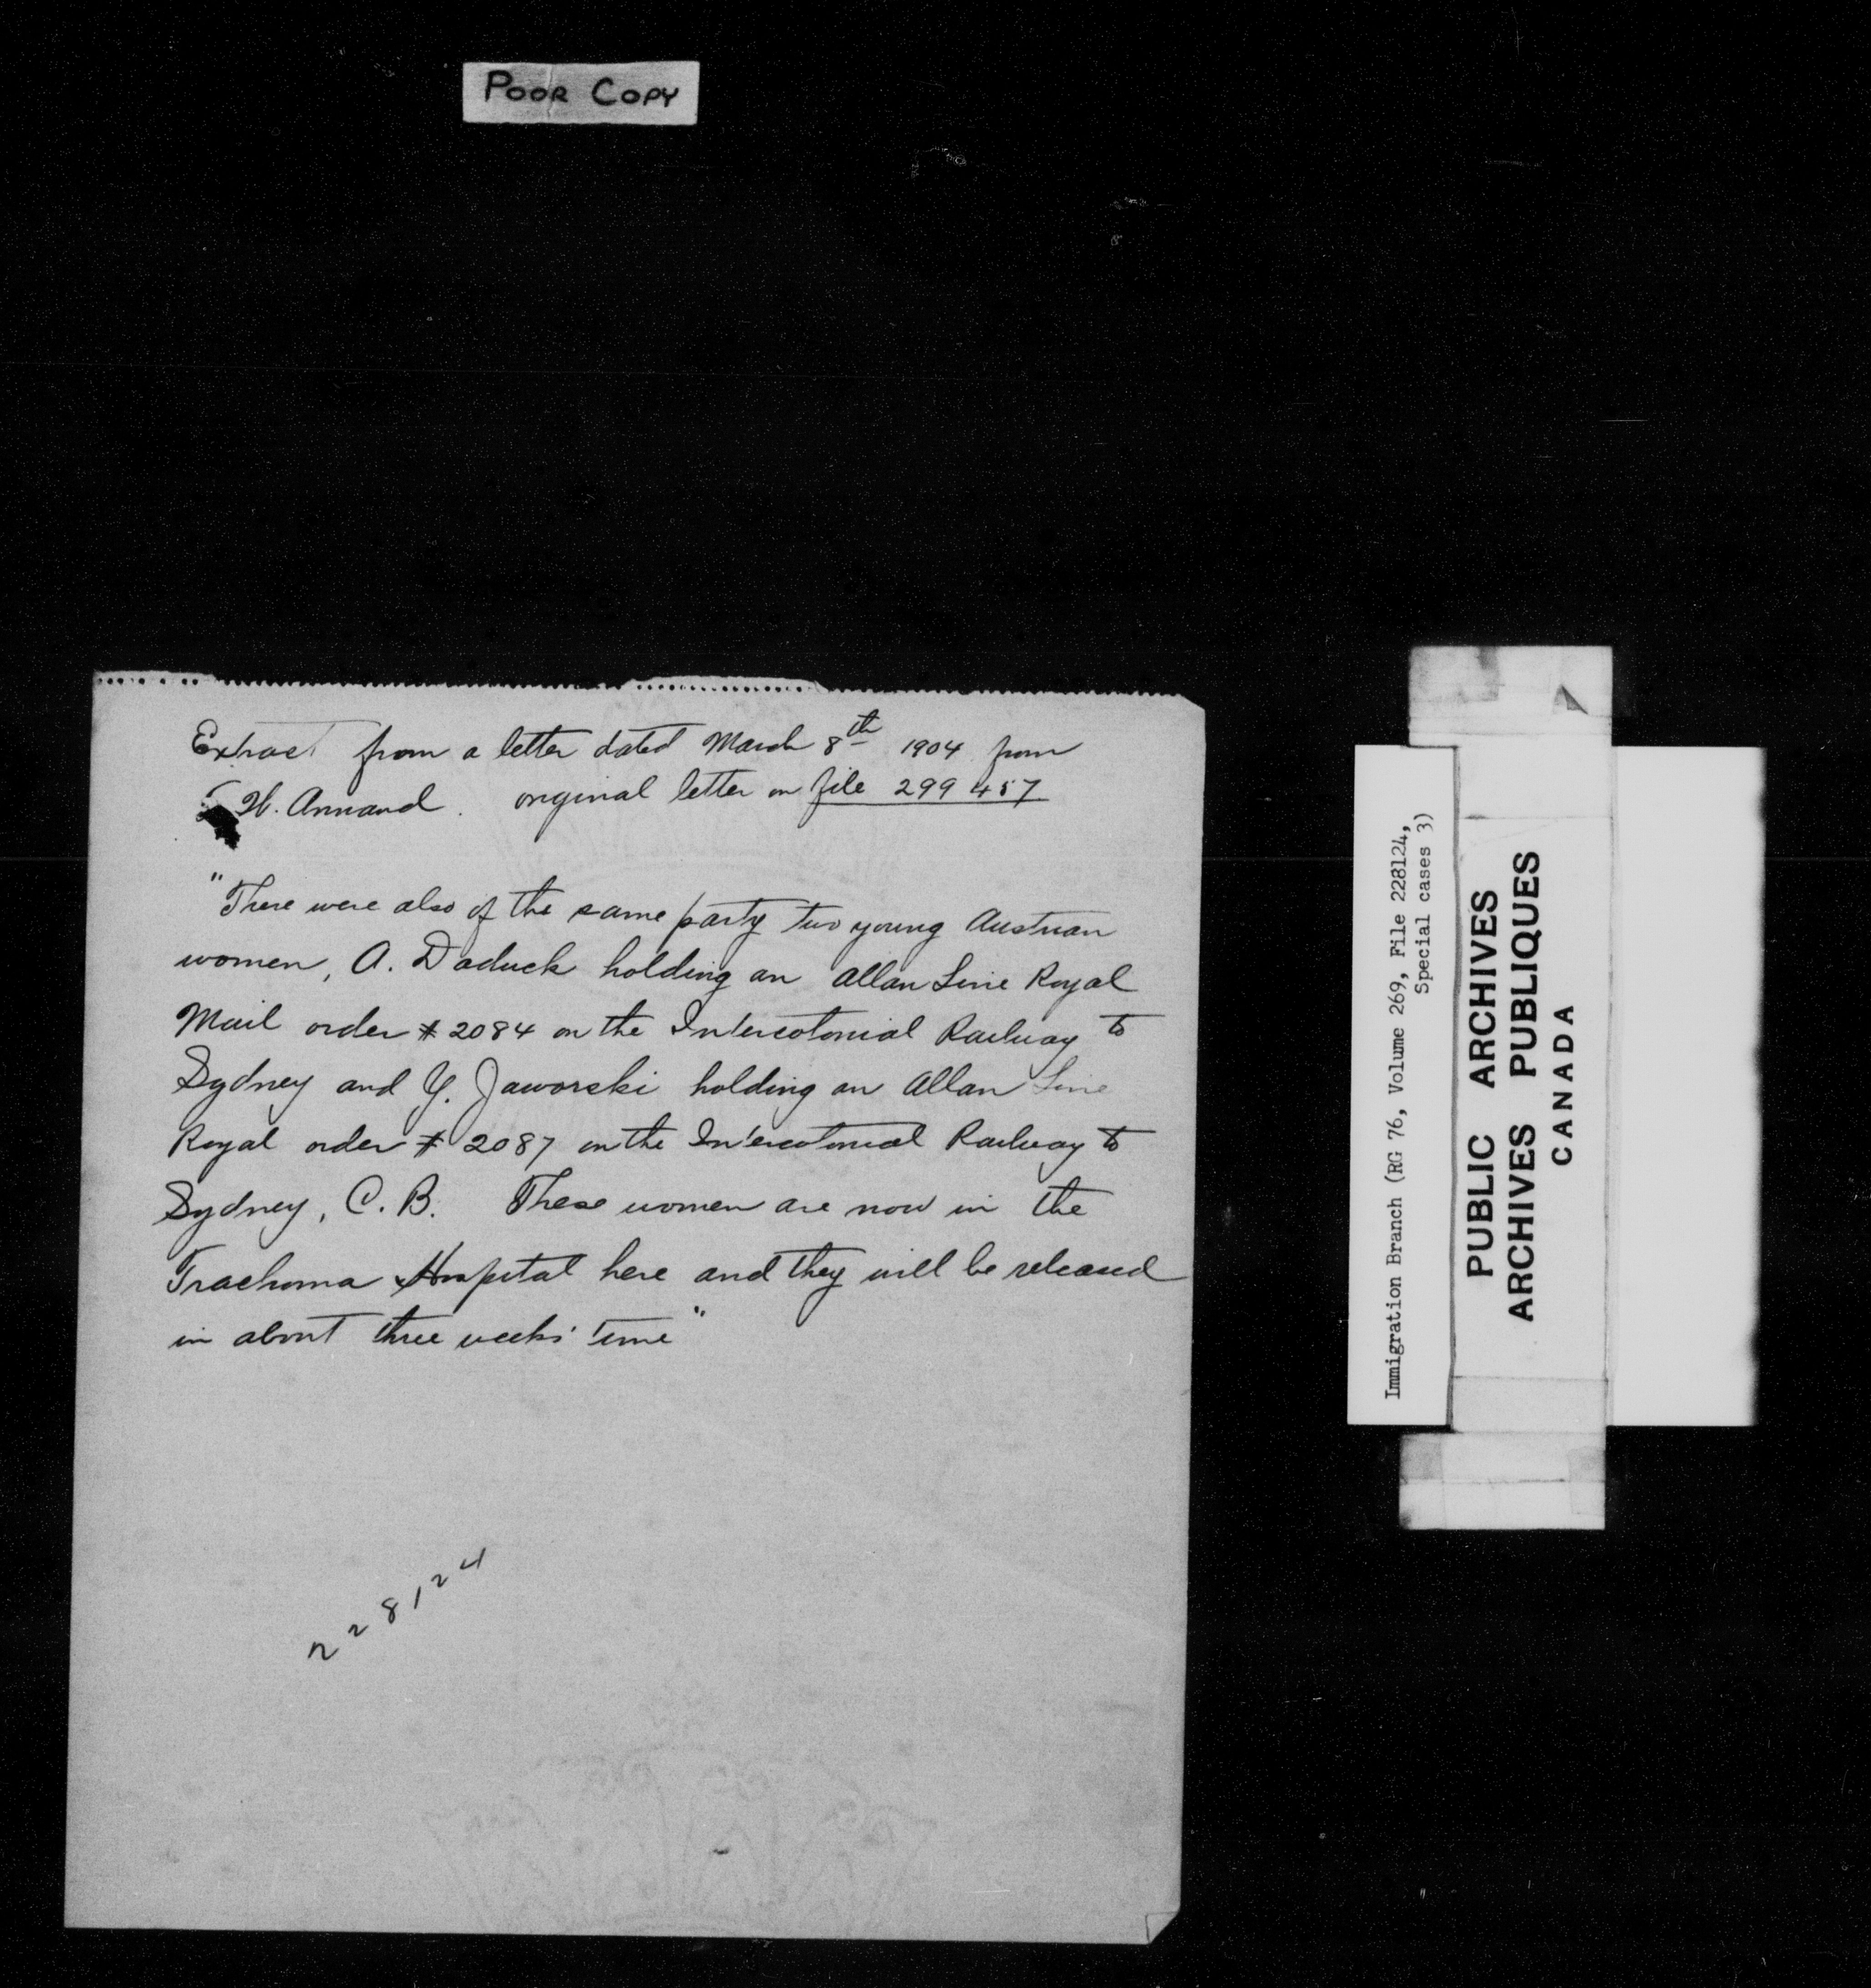 POOR COPY
Extract from a letter dated March 8th 1904 from
H. Annand. original letter on file 299 457
"There were also of the same party two young Austrian
women, A. Daduck holding an Allan Line Royal
Mail order # 2084 on the Intercolonial Railway to
Sydney and Y. Jaworski holding an Allan Line
Royal order # 2087 on the Intercolonial Railway to
Sydney, C. B. These women are now in the
Trachoma Hospital here and they will be released
in about three weeks' time"
228124
Immigration Branch (RG 76, Volume 269, File 228124,
Special cases 3)
PUBLIC ARCHIVES
ARCHIVES PUBLIQUES
CANADA